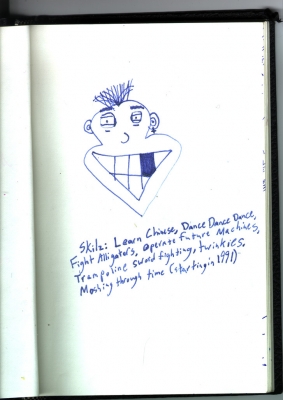 Skilz: Learn Chinese, Dance Dance Dance,
Fight Alligators, Operate Future Machines,
Trampoline sword fighting, twinkies,
Moshing through time (starting in 1991)